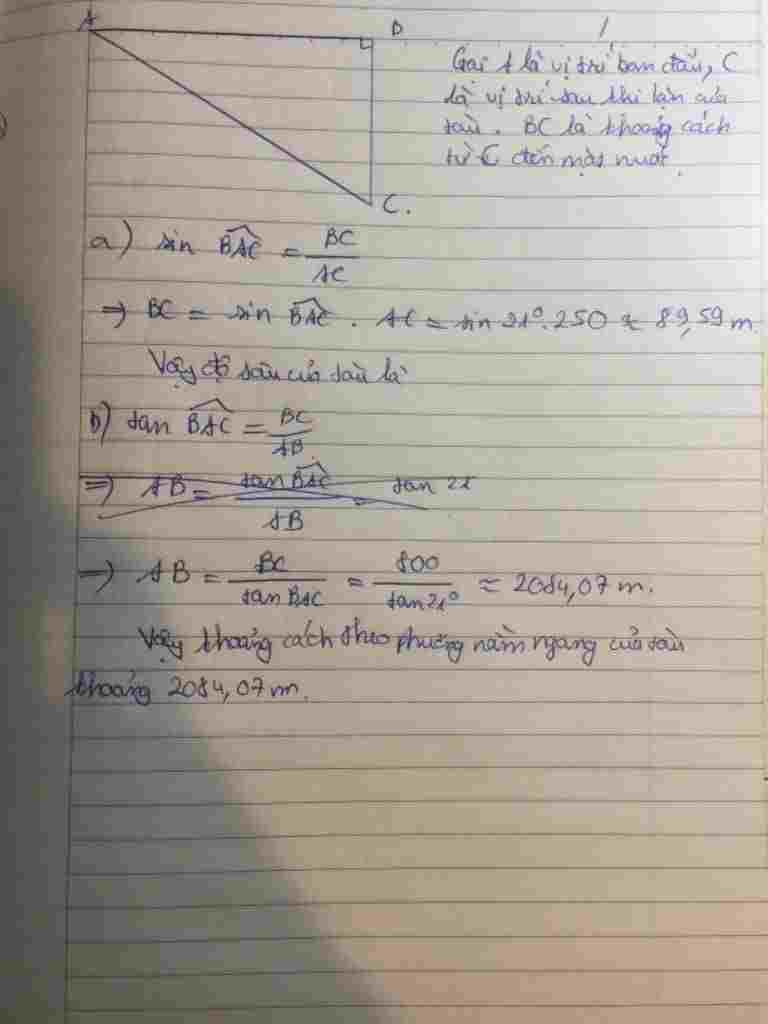 A B
Gọi A là vị trí ban đầu, C
là vị trí sau khi lặn của
tàu. BC là khoảng cách
từ C đến mặt nước.
C.
a) sin BAC = BC / AC
=> BC = sin BAC . AC = sin 21°. 250 ≈ 89,59 m.
Vậy độ sâu của tàu là
b) tan BAC = BC / AB
=> AB = tan BAC / AB = tan 21
=> AB = BC / tan BAC = 800 / tan 21° ≈ 2084,07 m.
Vậy khoảng cách theo phương nằm ngang của tàu
khoảng 2084,07 m.